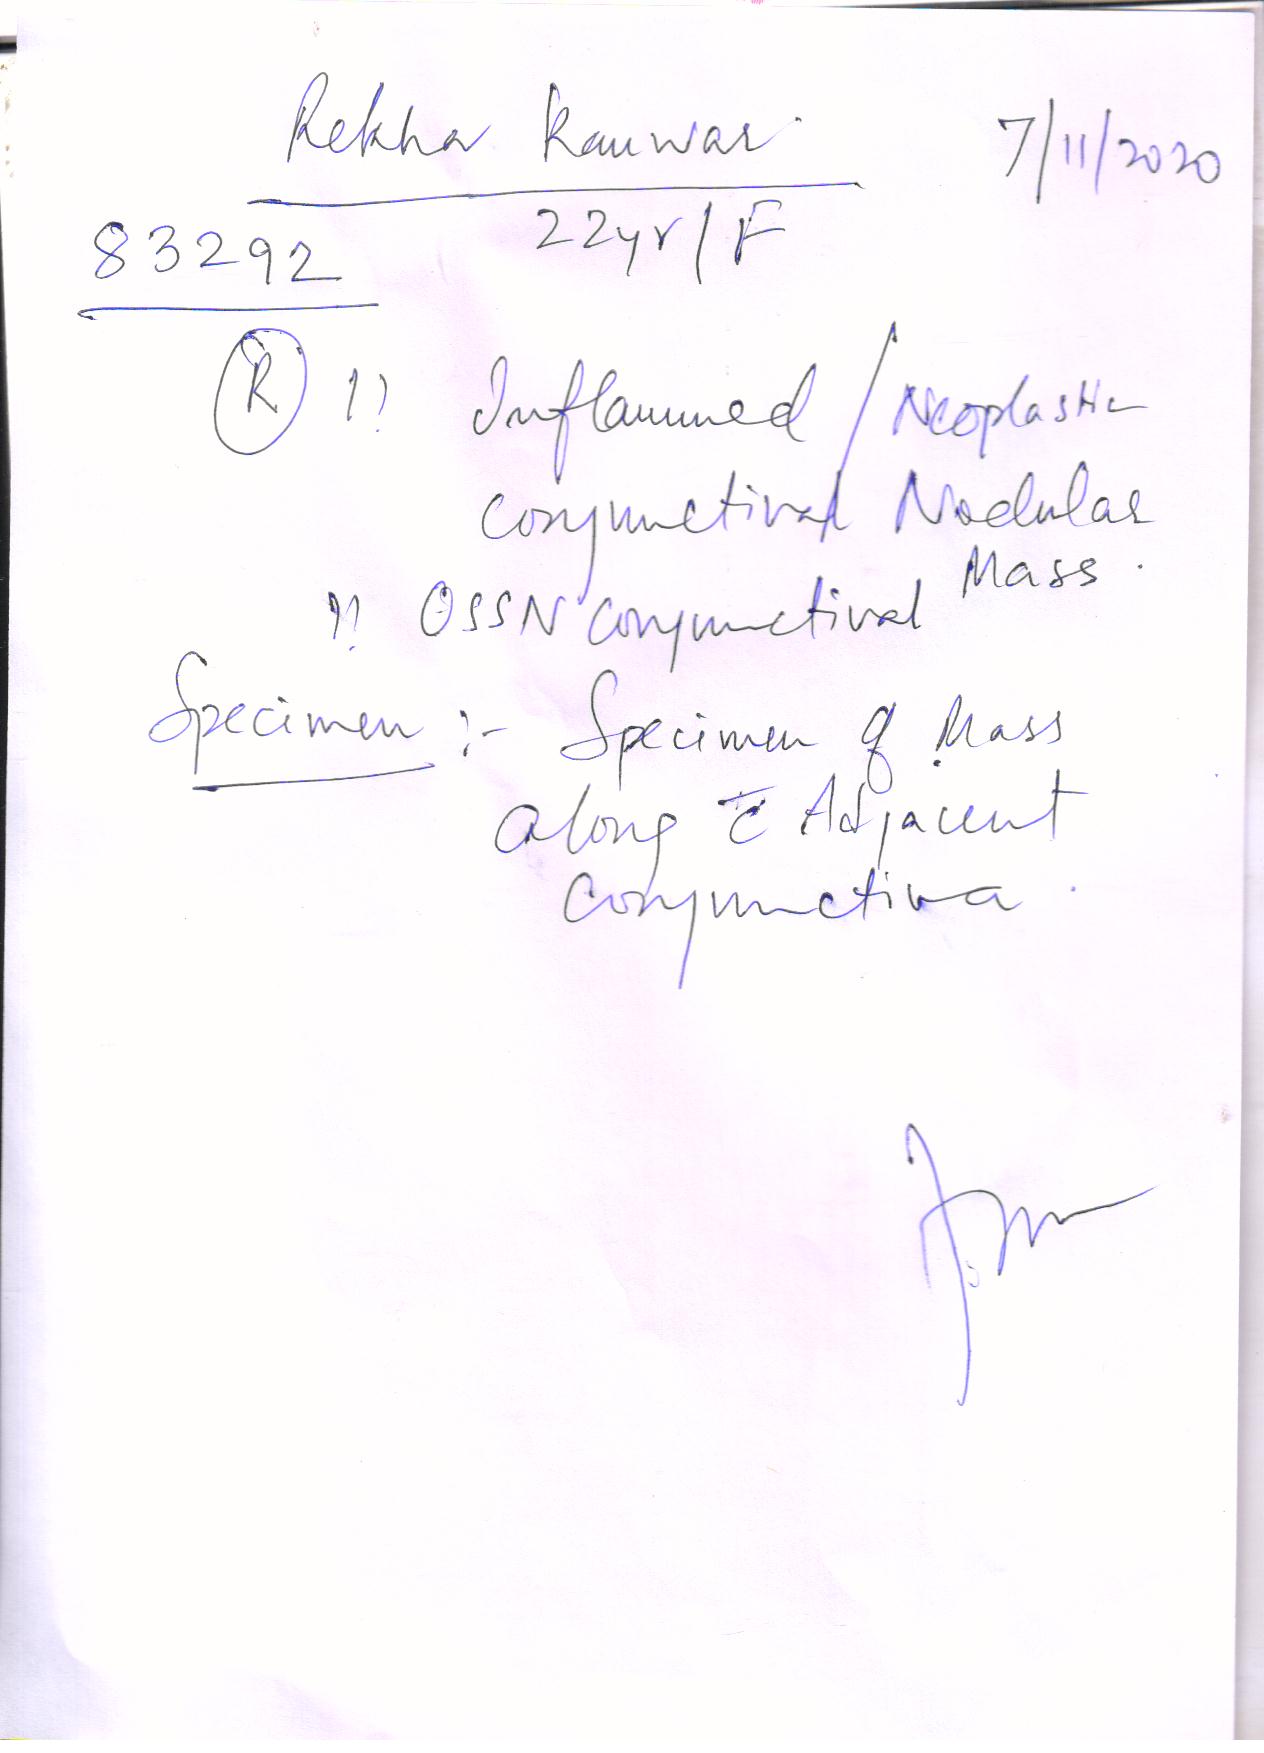 Rekha Kanwar 7/11/2020
22yr/F
83292
R ?? Inflammed / Neoplastic
Conjunctival Nodular
Mass.
?? OSSN Conjunctival
Specimen :- Specimen of Mass
along c̄ Adjacent
Conjunctiva.